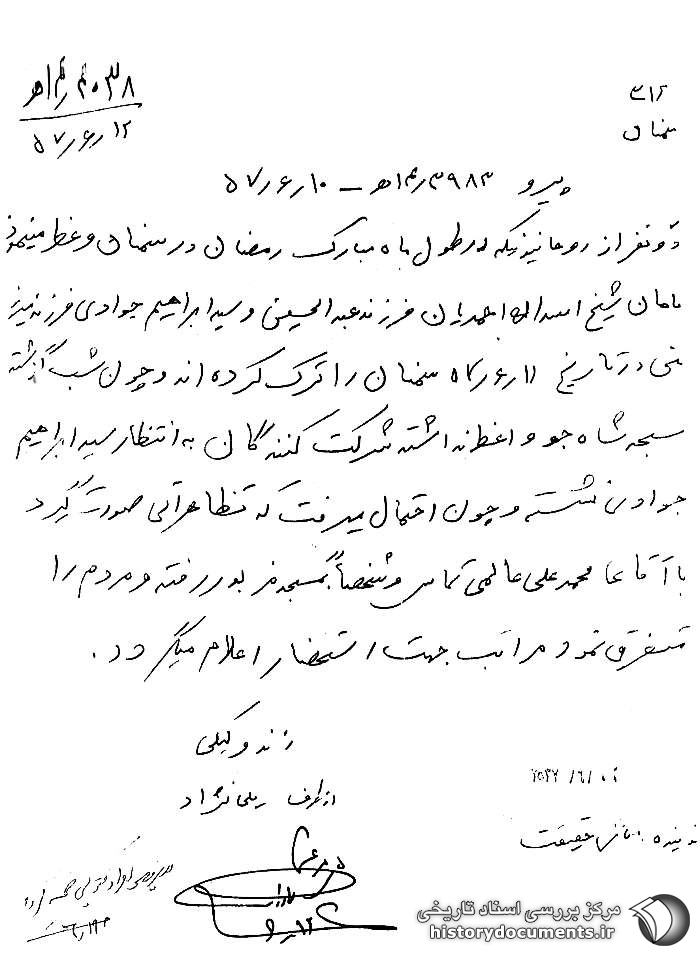 ۴۰۳۸/۱ه‍ ۲
۱۲/۶/۵۷
۳۱۲
سمنان
پیرو ۳۹۸۳/۱ه‍ ۲ – ۱۰/۶/۵۷
دو نفر از روحانیونیکه در طول ماه مبارک رمضان در سمنان وعظ مینمود
بنامان شیخ اسداله احمدیان فرزند عبدالحسین و سید ابراهیم جوادی فرزند
در تاریخ ۱۱/۶/۵۷ سمنان را ترک کرده اند و چون شب گذشته
مسجد شاه جو واعظ نداشته شرکت کنندگان به انتظار سید ابراهیم
جوادی نشسته و چون احتمال میرفت که تظاهراتی صورت گیرد
با آقای محمد علی عالمی تماس و شخصاً بمسجد مزبور رفته و مردم را
متفرق نمود مراتب جهت استحضار اعلام میگردد.
زند وکیلی
از طرف
۲۵۳۷/۶/
حقیقت
مرکز بررسی اسناد تاریخی
historydocuments.ir